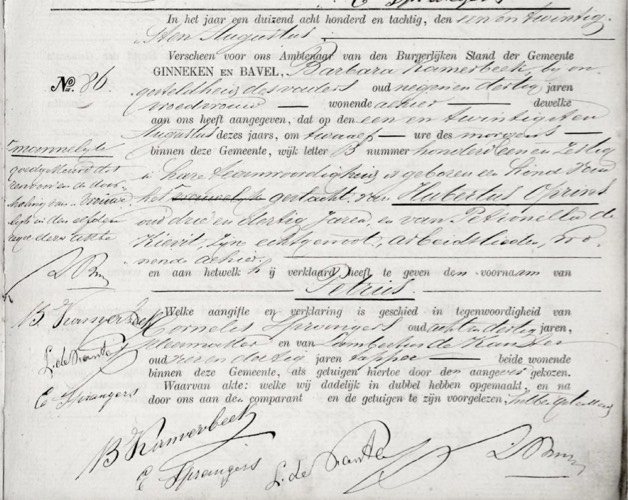 In het jaar een duizend acht honderd en tachtig, den een en twintig
sten Augustus
Verscheen voor ons Ambtenaar van den Burgerlijken Stand der Gemeente
No. 86.
GINNEKEN EN BAVEL, Barbara Kamerbeek, bij on
gesteldheid des vaders oud negen en dertig jaren
vroedvrouw wonende alhier dewelke
aan ons heeft aangegeven, dat op den een en twintigsten
Augustus dezes jaars, om twaalf ure des morgens
binnen deze Gemeente, wijk letter B nummer honderd een en zestig
in hare tegenwoordigheid is geboren een kind van
het gestacht, van Hubertus
oud drie en dertig jaren, en van Petronella de
Kievit, zijn echtgenoot, arbeidslieden, wo
nende alhier
en aan hetwelk hij verklaard heeft te geven den voornaam van
Petrus
Welke aangifte en verklaring is geschied in tegenwoordigheid van
Cornelis Sprangers oud acht en dertig jaren,
en van Lambertus de
oud en dertig jaren tapper beide wonende
binnen deze Gemeente, als getuigen hiertoe door den aangever gekozen.
Waarvan akte: welke wij dadelijk in dubbel hebben opgemaakt, en na
door ons aan den comparant en de getuigen te zijn voorgelezen,
mannelijk
goedgekeurd de
B. Kamerbeek
L. de
C. Sprangers
B Kamerbeek
C Sprangers
L. de